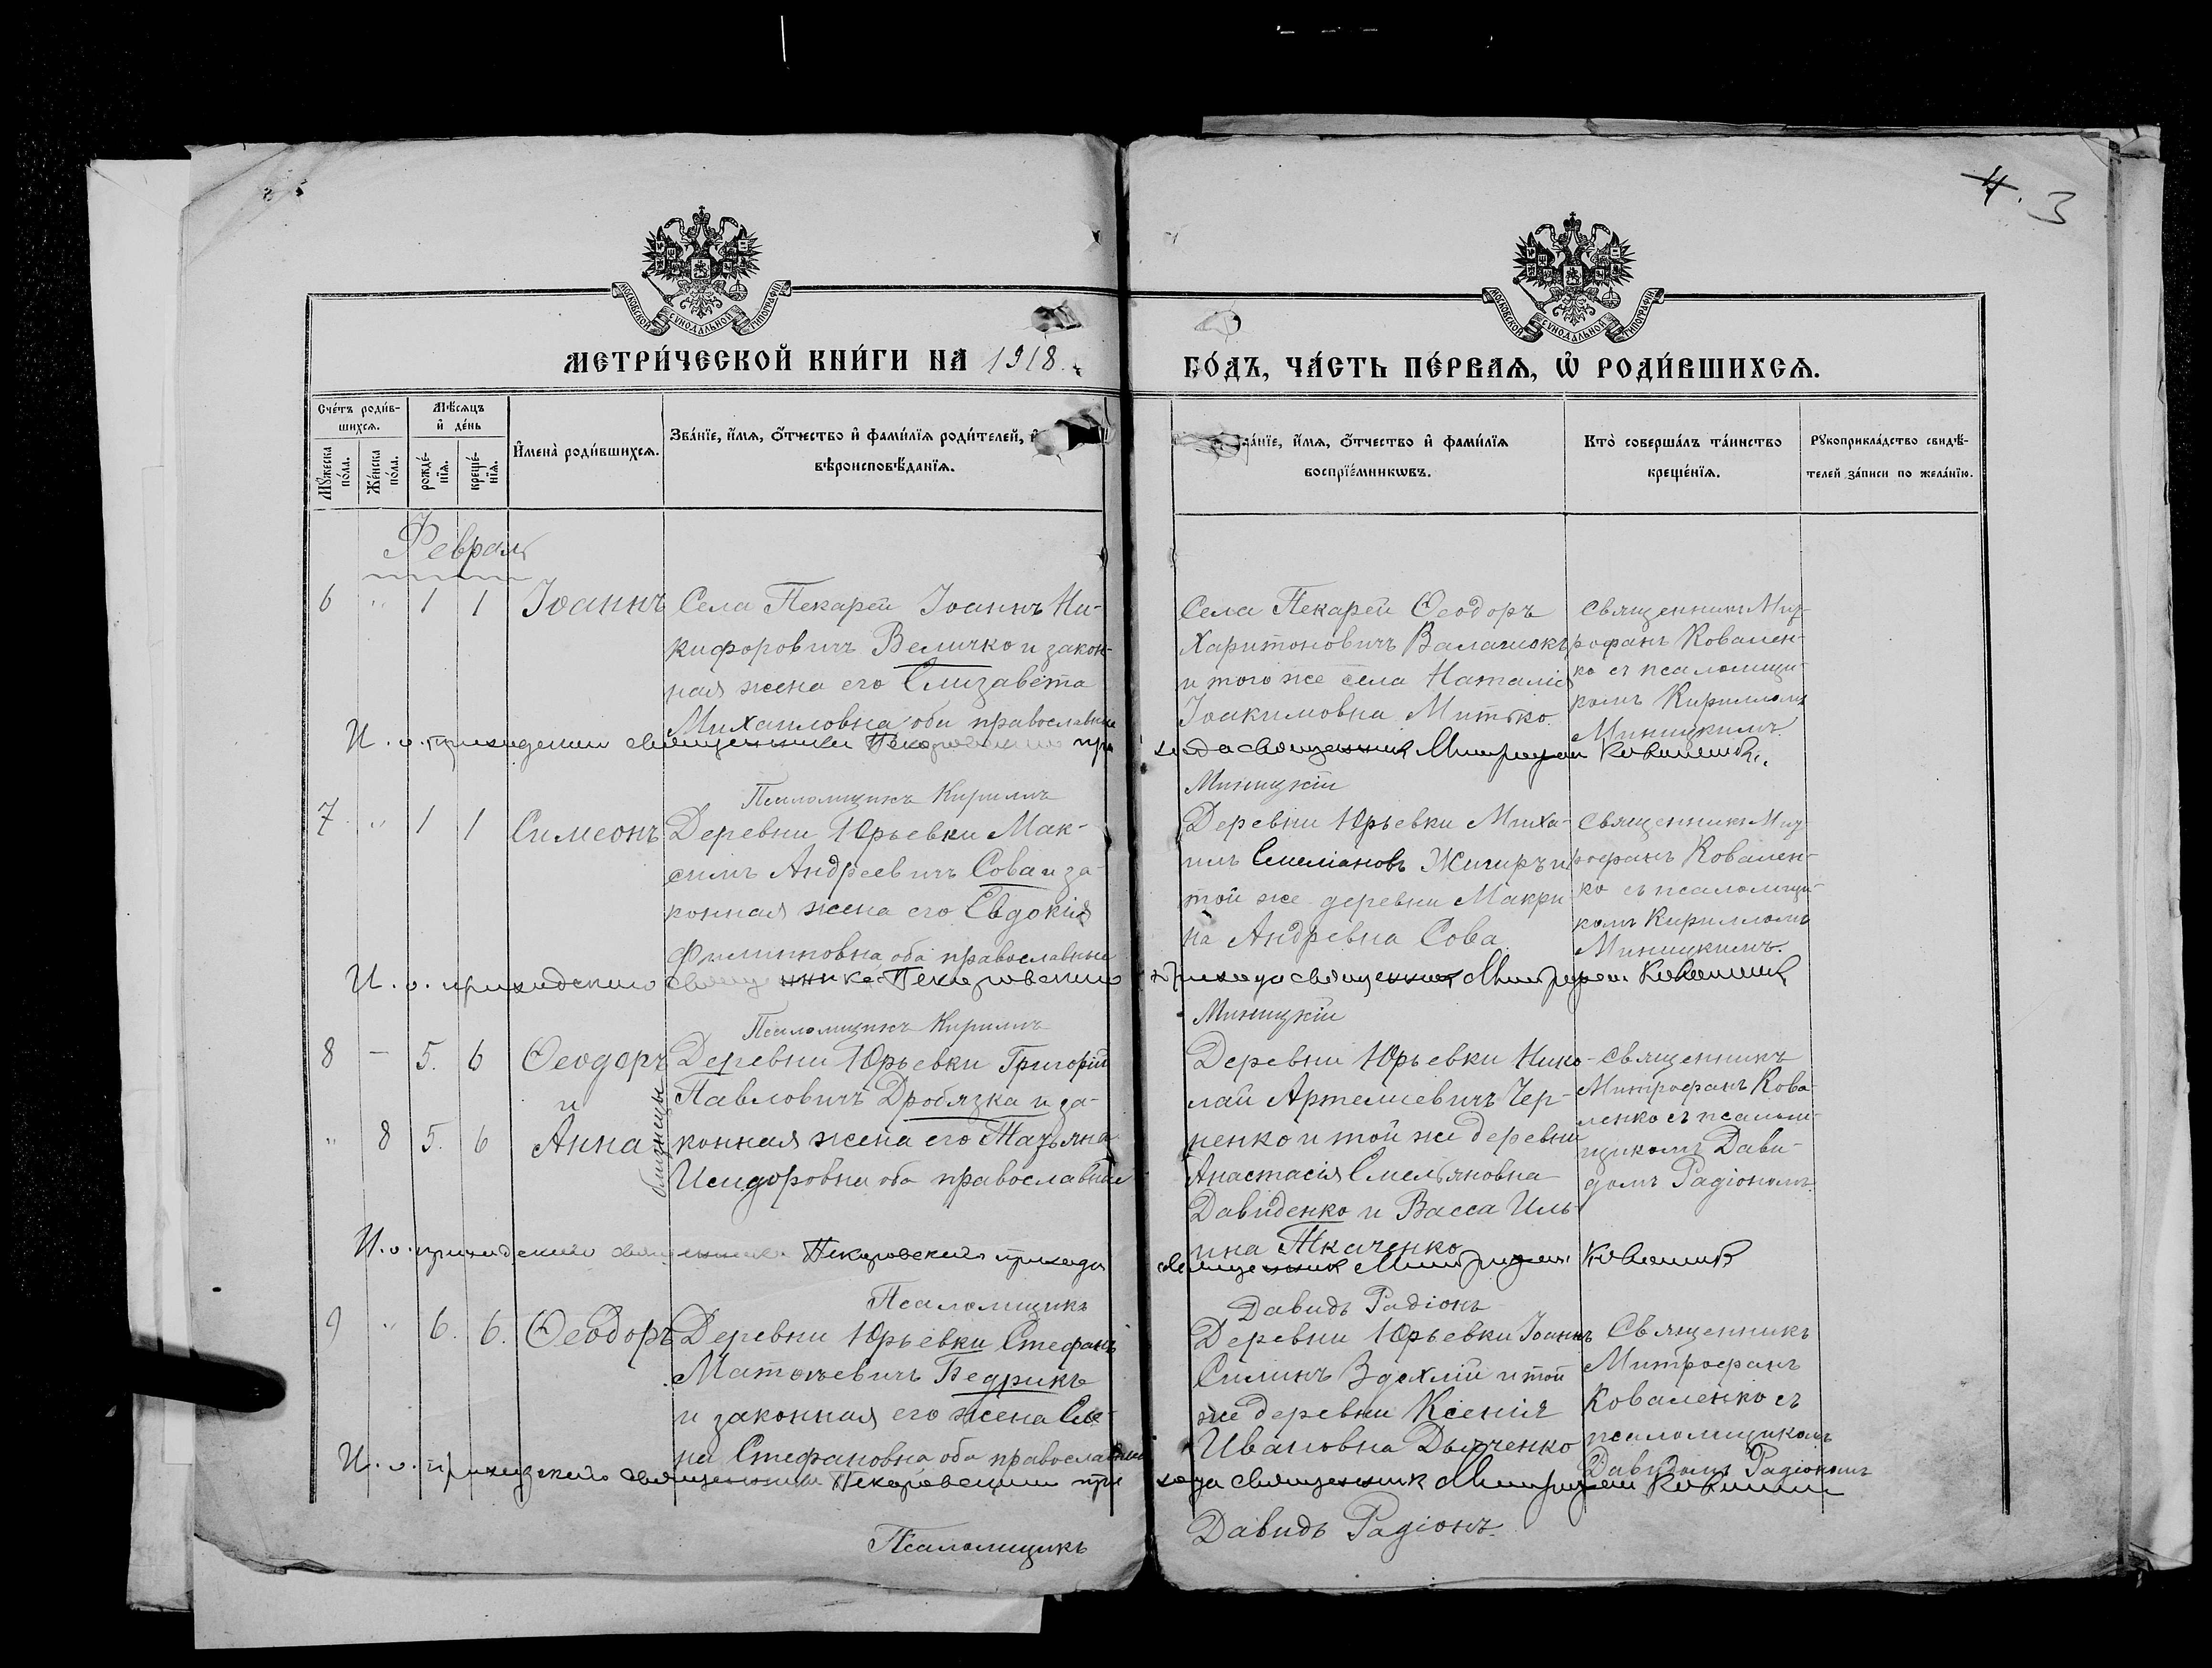 4. 3
МОСКОВСКОЙ СѴНОДАЛЬНОЙ ТИПОГРАФІИ
МОСКОВСКОЙ СѴНОДАЛЬНОЙ ТИПОГРАФІИ
МЕТРИ́ЧЕСКОЙ КНИ́ГИ НА 1918
ГО́ДЪ, ЧА́СТЬ ПЕ́РВАѦ, Ѡ҆ РОДИ́ВШИХСѦ.
Сче́тъ роди́в-
шихсѧ.
Мꙋ́жеска по́ла.
Же́нска по́ла.
Мѣ́сѧцъ и҆ де́нь
рожде́-нїѧ.
креще́-нїѧ.
И҆мена̀ роди́вшихсѧ.
Зва́нїе, и҆́мѧ, ѻ҆́тчество и҆ фами́лїѧ роди́телей, и҆
вѣроисповѣ́данїѧ.
и҆́мѧ, ѻ҆́тчество и҆ фами́лїѧ
воспрїе́мникѡвъ.
Кто̀ соверша́лъ та́инство
креще́нїѧ.
Рꙋкоприкла́дство свидѣ́-
телей за́писи по жела́нїю.
Февраль
6 " 1 1 Іоаннъ
Села Пекарей Іоаннъ Ни-
кифоровичъ Величко и закон-
ная жена его Елизавета
Михаиловна оба православные
Села Пекарей Ѳеодоръ
Харитоновичъ Валашокъ
и того же села Наталія
Іоакимовна Митько.
Священникъ Мит-
рофанъ Ковален-
ко съ псаломщи-
комъ Кирилломъ
Миницкимъ.
И. о. приходскаго священника Пекаровскаго при
хода священник Митрофан Коваленко.
Псаломщикъ Кириллъ
Миницкій
7 " 1 1 Симеонъ
Деревни Юрьевки Мак-
симъ Андреевичъ Сова и за-
конная жена его Евдокія
Филипповна оба православные
Деревни Юрьевки Миха-
илъ Емеліановъ Жигиръ и
той же деревни Макри
на Андревна Сова
Священникъ Мит-
рофанъ Ковален-
ко съ псаломщи-
комъ Кирилломъ
Миницкимъ.
И. о. приходскаго священника Пекаровскаго
прихода священник Митрофан Коваленко
Псаломщикъ Кириллъ
Миницкій
8 — 5. 6 Ѳеодоръ
и
" 8 5. 6 Анна
близнецы
Деревни Юрьевки Григорій
Павловичъ Дробязка и за-
конная жена его Татьяна
Исидоровна оба православные
Деревни Юрьевки Нико-
лай Артемиевичъ Чер-
ненко и той же деревни
Анастасія Емельяновна
Давиденко и Васса Иль
ина Ткаченко
Священникъ
Митрофанъ Кова-
ленко съ псалом-
щикомъ Дави-
домъ Радіономъ.
И. о. приходскаго священника Пекаровскаго прихода
священник Митрофан Коваленко
Псаломщикъ
Давидъ Радіонъ
9 " 6. 6. Ѳеодоръ
Деревни Юрьевки Стефанъ
Матѳѣевичъ Бедрикъ
и законная его жена Еле-
на Стефановна оба православные
Деревни Юрьевки Іоаннъ
Силинъ Здохлій и той
же деревни Ксенія
Ивановна Дьяченко
Священникъ
Митрофанъ
Коваленко съ
псаломщикомъ
Давидомъ Радіономъ
И. о. приходскаго священника Пекаровскаго при
хода священник Митрофан Коваленко
Псаломщикъ
Давидъ Радіонъ.